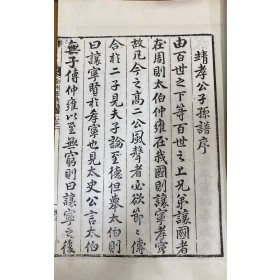 靖孝公子孫譜序
由百世之下等百世之上兄弟讓國者
在周則太伯仲雍在我國則讓寧孝寧
故凡今之高二公風聲者必欲節々傳
合於二子見夫子論至德但褒太伯則
曰讓寧賢於孝寧也見太史公言太伯
無子傳仲雍以至無窮則曰讓寧之後